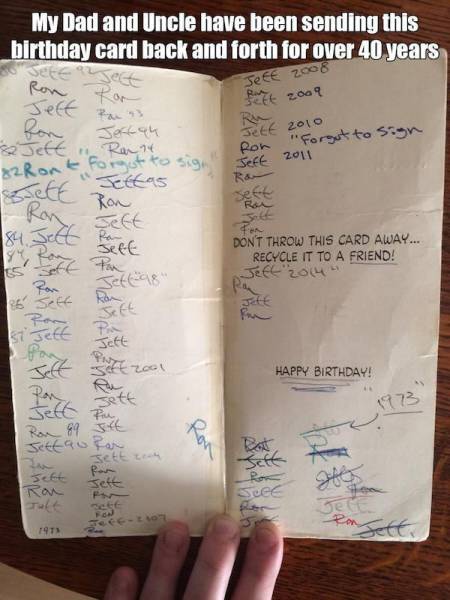 My Dad and Uncle have been sending this
birthday card back and forth for over 40 years
Jeff
Ron
Jeff
Ron
82 Jeff
82 Ron & "Forgot to sign"
83 Jeff
Ron
84 Jeff
84 Ron
85 Jeff
Ron
86 Jeff
Ron
87 Jeff
Ron
Jeff
Ron
Jeff
Ron 89
Jeff 90
Ron
Jeff
Ron
Jeff
1973
92 Jeff
Ron
Ron 93
Jeff 94
Ron 94
Jeff 95
Ron
Jeff
Ron
Jeff
Ron
Jeff "98"
Ron
Jeff
Ron
Jeff
Ron
Jeff 2001
Ron
Jeff
Ron
Jeff
Ron
Jeff 2004
Ron
Jeff
Ron
Jeff
Ron
Jeff-2007
Ron
Ron
Jeff 2008
Ron
Jeff 2009
Ron
Jeff 2010
Ron "Forgot to Sign"
Jeff 2011
Ron
Jeff
Ron
Jeff
Ron
DON'T THROW THIS CARD AWAY...
RECYCLE IT TO A FRIEND!
Jeff "2014"
Ron
Jeff
Ron
HAPPY BIRTHDAY!
"1973"
Ron
Jeff
Ron
Jeff
Ron
Jeff
Ron
Jeff
Ron
Jeff